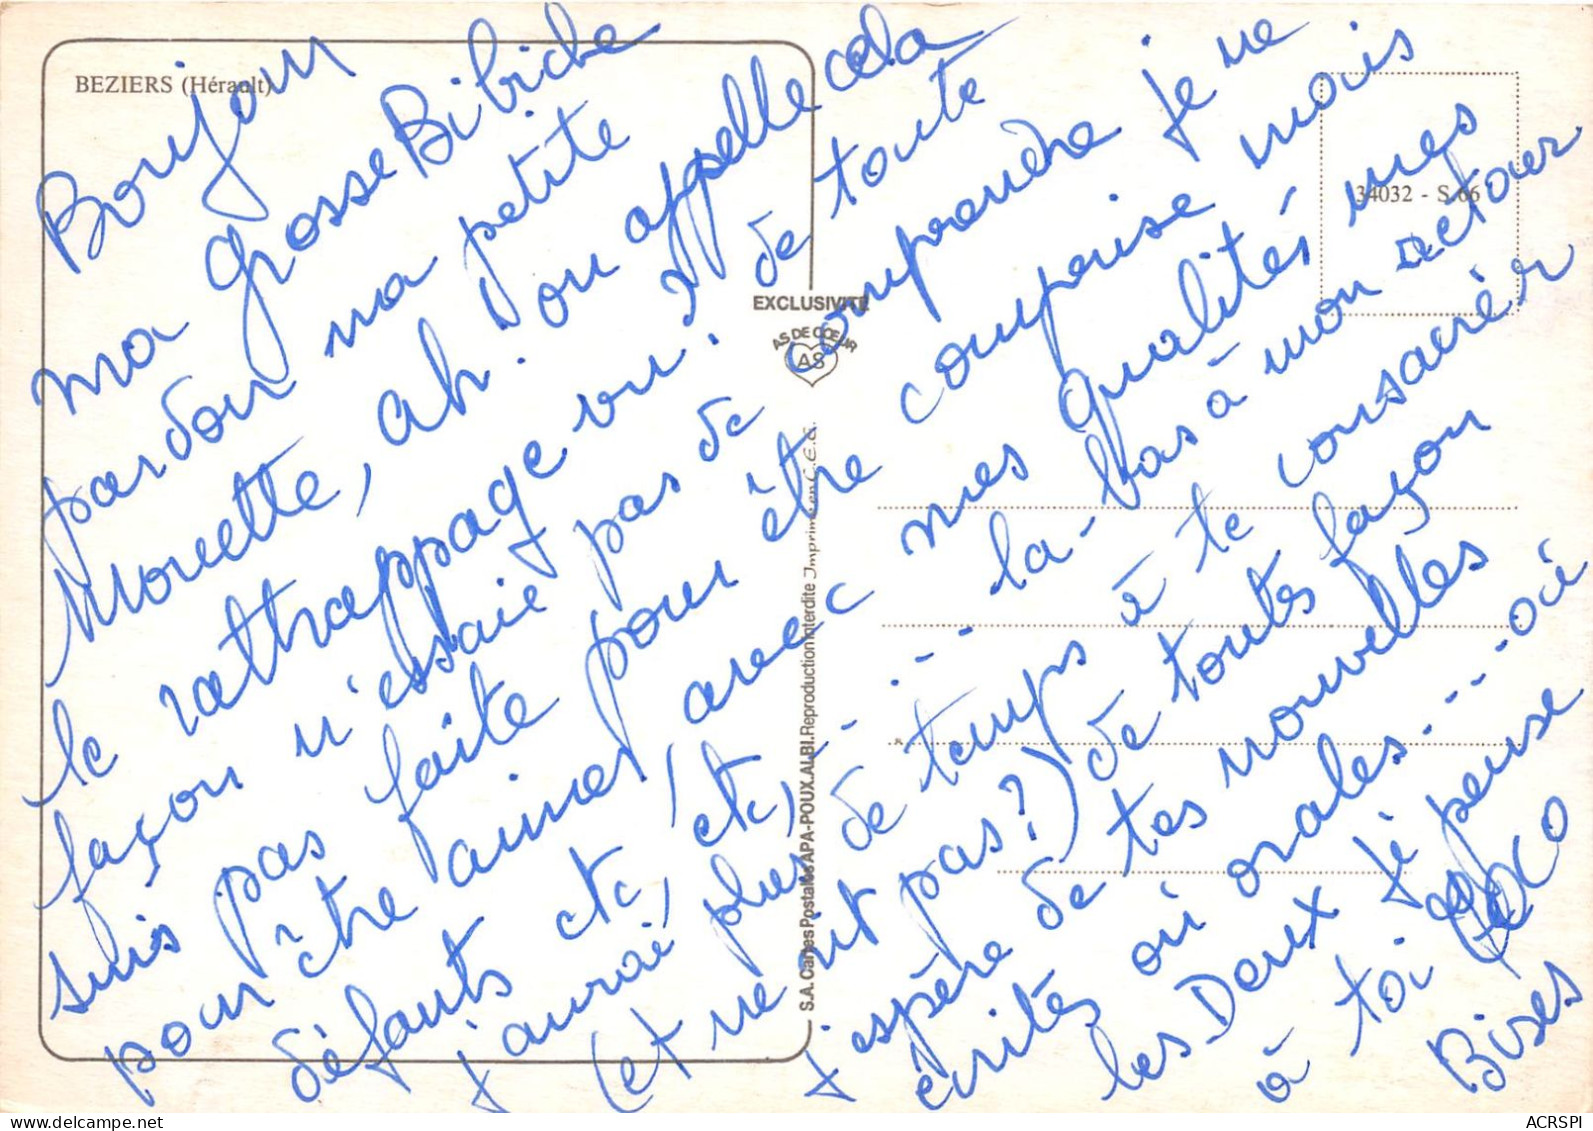 BEZIERS (Hérault)
34032 - S.66
EXCLUSIVITE
AS DE CŒUR
AS
S.A. Cartes Postales APA-POUX.ALBI. Reproduction interdite Imprimé en C.E.E.
Bonjour
ma grosse Bibiche
pardon ma petite
Mouette, ah! on appelle cela
le rattrappage ou? de toute
façon n'essaie pas de comprendre je ne
suis pas faite pour être comprise mais
pour être aimer avec mes qualités mes
défauts etc, etc, ... la-bas à mon retour
j'aurai, plus de temps à te consacrér
(et ne rit pas?) de toutes façon
j'espère de tes nouvelles
écrités ou orales ... où
les Deux je pense
à toi
COCO
Bisés
ACRSPI